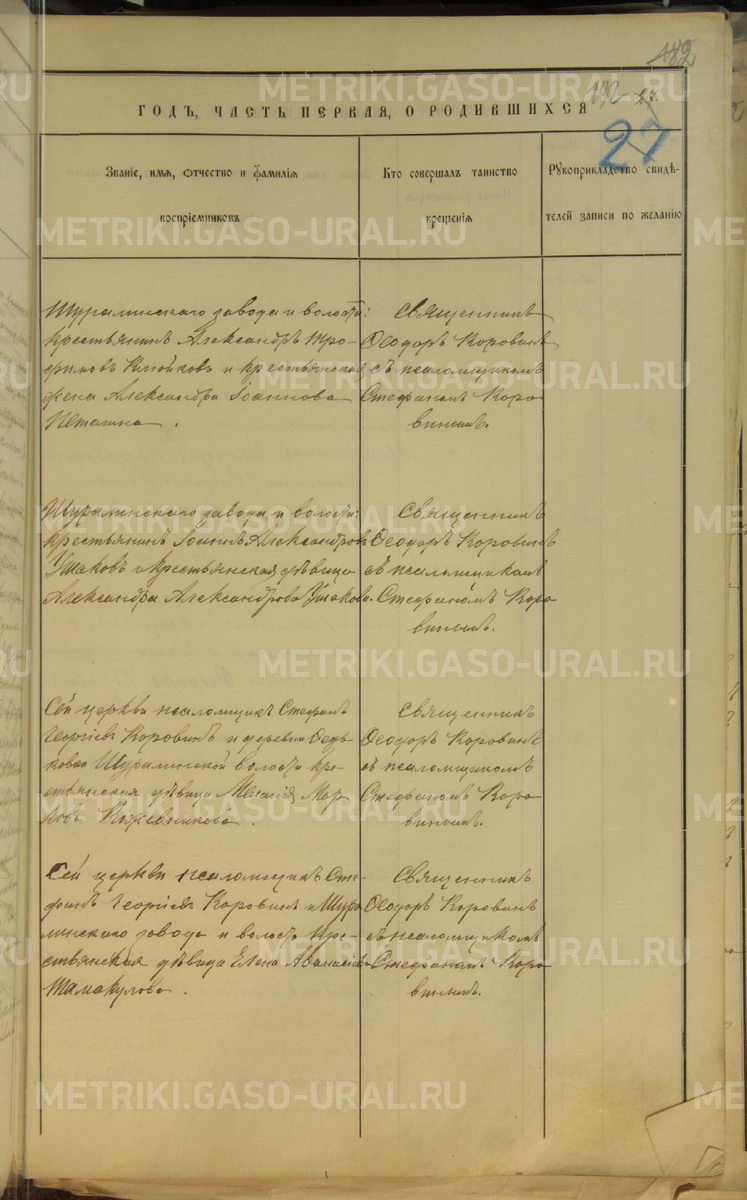 182
192
27
ГОДЪ, ЧАСТЬ ПЕРВАЯ, О РОДИВШИХСЯ
Званіе, имя, отчество и фамилія
воспріемниковъ
Кто совершалъ таинство
крещенія
Рукоприкладство свидѣ-
телей записи по желанію
Шуралинскаго завода и волости:
крестьянинъ Александръ Тро-
фимовъ и крестьянская
жена Александра Іоаннова
Петелина.
Священникъ
Ѳеодоръ Коровинъ
съ псаломщикомъ
Стефаномъ Коро
винымъ.
Шуралинскаго завода и волости:
крестьянинъ Іоаннъ Александровъ
Ушаковъ и крестьянская дѣвица
Александра Александрова Ушакова.
Священникъ
Ѳеодоръ Коровинъ
съ псаломщикомъ
Стефаномъ Коро
винымъ.
Сей церкви псаломщикъ Стефанъ
Георгіевъ Коровинъ и деревни Ѳедь
ковки Шуралинской волости кре-
стьянская дѣвица Меланія Мар
кова Кожевникова.
Священникъ
Ѳеодоръ Коровинъ
съ псаломщикомъ
Стефаномъ Коро
винымъ.
Сей церкви псаломщикъ Сте-
фанъ Георгіевъ Коровинъ и Шура
линскаго завода и волости кре-
стьянская дѣвица Елена Аѳанасіева
Шамакулова.
Священникъ
Ѳеодоръ Коровинъ
съ псаломщикомъ
Стефаномъ Коро
винымъ.
METRIKI.GASO-URAL.RU
METRIKI.GASO-URAL.RU
METRIKI.GASO-URAL.RU
METRIKI.GASO-URAL.RU
METRIKI.GASO-URAL.RU
METRIKI.GASO-URAL.RU